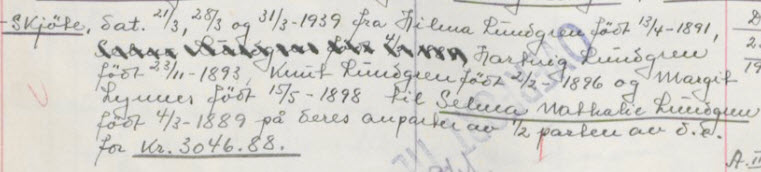 - Skjöte, dat. 21/3, 28/3 og 31/3-1939 fra Hilma Lundgren född 13/4-1891,
Hartvig Lundgren
född 23/11-1893, Knut Lundgren född 2/2-1896 og Margit
född 15/5-1898 til Selma Nathalie Lundgren
född 4/3-1889 på deres anparter av 1/2 parten av d.e.
for Kr. 3046.88.
A. II